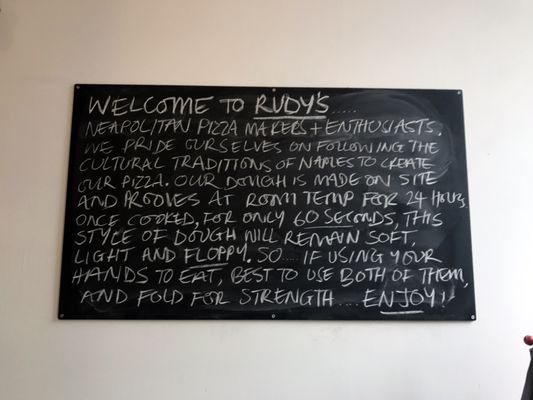 WELCOME TO RUDY'S.....
NEAPOLITAN PIZZA MAKERS + ENTHUSIASTS.
WE PRIDE OURSELVES ON FOLLOWING THE
CULTURAL TRADITIONS OF NAPLES TO CREATE
OUR PIZZA. OUR DOUGH IS MADE ON SITE
AND PROVES AT ROOM TEMP FOR 24 HOURS.
ONCE COOKED, FOR ONLY 60 SECONDS, THIS
STYLE OF DOUGH WILL REMAIN SOFT,
LIGHT AND FLOPPY. SO.... IF USING YOUR
HANDS TO EAT, BEST TO USE BOTH OF THEM,
AND FOLD FOR STRENGTH .... ENJOY!